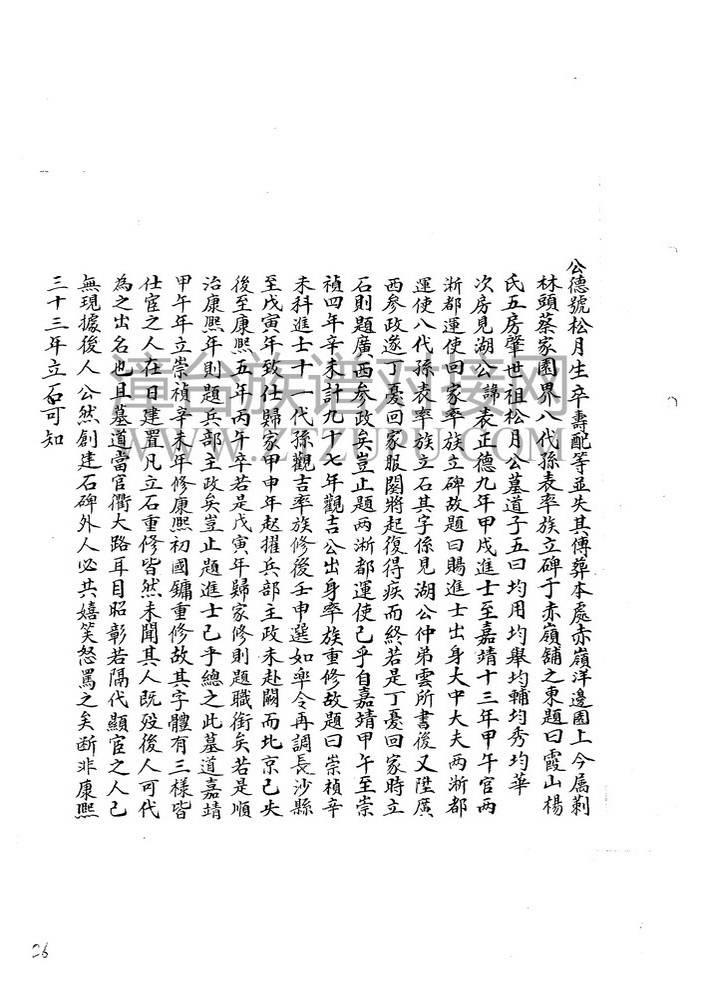 公德號松月生卒壽配等並失其傳葬本處赤嶺洋邊園上今属剃
林頭蔡家園界八代孫表率族立碑于赤嶺舖之東題曰霞山楊
氏五房肇世祖松月公墓道子五曰均用均舉均輔均秀均華
次房見湖公諱表正德九年甲戌進士至嘉靖十三年甲午官两
淅都運使回家率族立碑故題曰賜進士出身大中大夫两淅都
運使八代孫表率族立石其字係見湖公仲弟雲所書後又陞廣
西参政遂丁憂回家服闋將起復得疾而終若是丁憂回家時立
石則題廣西参政矣豈止題两淅都運使已乎自嘉靖甲午至崇
禎四年辛未計九十七年觀吉公出身率族重修故題曰崇禎辛
未科進士十一代孫觀吉率族修後壬申選如皋令再調長沙縣
至戊寅年致仕歸家甲申年起擢兵部主政未赴闕而北京已失
後至康熙五年丙午卒若是戊寅年歸家修則題職銜矣若是順
治康熙年則題兵部主政矣豈止題進士已乎總之此墓道嘉靖
甲午年立崇禎辛未年修康熙初國鏞重修故其字體有三樣皆
仕宦之人在日建置凡立石重修皆然未聞其人既歿後人可代
為之出名也且墓道當官衢大路耳目昭彰若隔代顯宦之人已
無現據後人公然創建石碑外人必共嬉笑怒罵之矣断非康熙
三十三年立石可知
壹台族谱对接网
WWW.ZUPU.COM
26